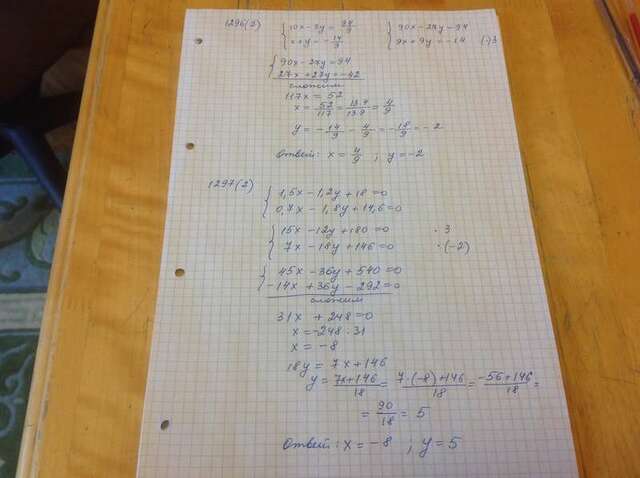 1296(2) { 10x - 3y = 94/9 { 90x - 27y = 94
x + y = - 14/9 9x + 9y = -14 (·)3
{ 90x - 27y = 94
27x + 27y = -42
сложим
117x = 52
x = 52/117 = 13·4/13·9 = 4/9
y = - 14/9 - 4/9 = - 18/9 = - 2
Ответ: x = 4/9 ; y = -2
1297(2) { 1,5x - 1,2y + 18 = 0
0,7x - 1,8y + 14,6 = 0
{ 15x - 12y + 180 = 0 · 3
7x - 18y + 146 = 0 · (-2)
{ 45x - 36y + 540 = 0
-14x + 36y - 292 = 0
сложим
31x + 248 = 0
x = -248 : 31
x = -8
18y = 7x + 146
y = 7x+146/18 = 7·(-8)+146/18 = -56+146/18 =
= 90/18 = 5
Ответ: x = -8 ; y = 5